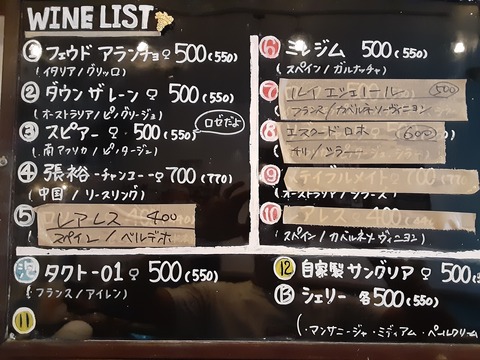 WINE LIST
① フェウド アランチョ♀ 500(550)
(イタリア/グリッロ)
② ダウン ザ レーン ♀ 500(550)
(オーストラリア/ピノ・グリージュ)
③ スピアー ♀ 500(550)
ロゼだよ
(南アフリカ/ピノタージュ)
④ 張裕-チャンユー-♀700(770)
(中国/リースリング)
⑤ レアレス 400
スペイン/ベルデホ
タクト-01 ♀ 500(550)
(フランス/アイレン)
⑪
⑥ ミレジム 500(550)
(スペイン/ガルナッチャ)
⑦ ルイ エシェリール 500
フランス/カベルネソーヴィニヨン
⑧ エスクードロホ 600
チリ/シラー
⑨ ステイブルメイト♀700(770)
(オーストラリア/シラーズ)
⑩ レアレス 400
(スペイン/カベルネソーヴィニヨン)
⑫ 自家製サングリア♀ 500
⑬ シェリー 各500(550)
(・マンサニージャ・ミディアム・ペールクリーム